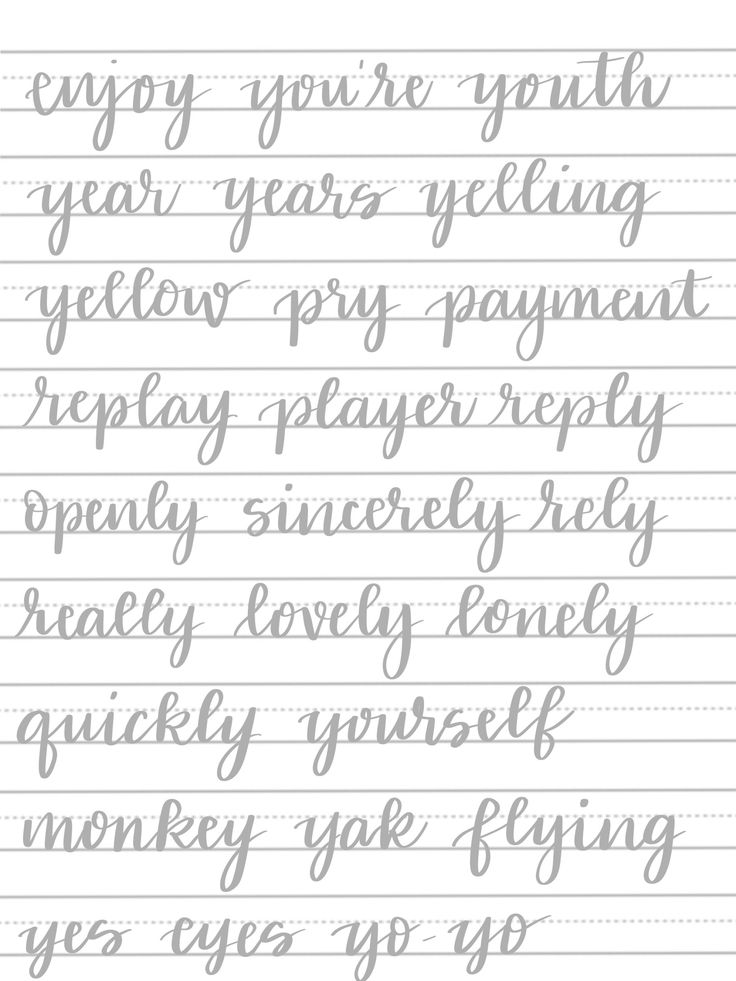 enjoy you're youth
year years yelling
yellow pry payment
replay player reply
openly sincerely rely
really lovely lonely
quickly yourself
monkey yak flying
yes eyes yo-yo